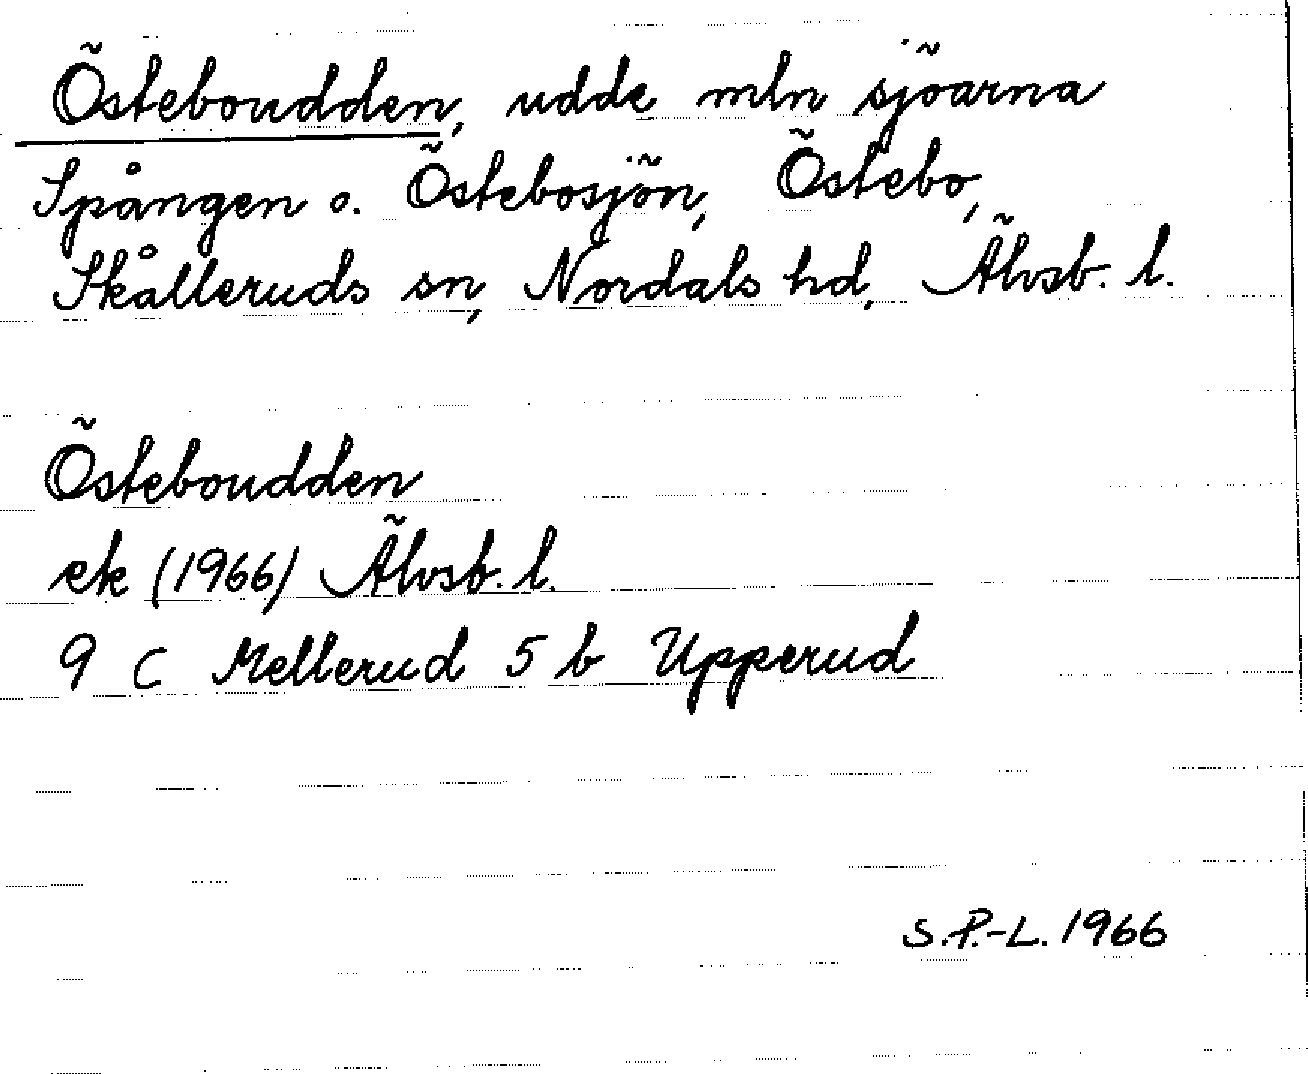 Östeboudden, udde mln sjöarna
Spången o. Östebosjön, Östebo,
Skålleruds sn, Nordals hd, Älvsb. l.
Östeboudden
ek (1966) Älvsb. l.
9 C Mellerud 5 b Upperud
S.P.-L. 1966